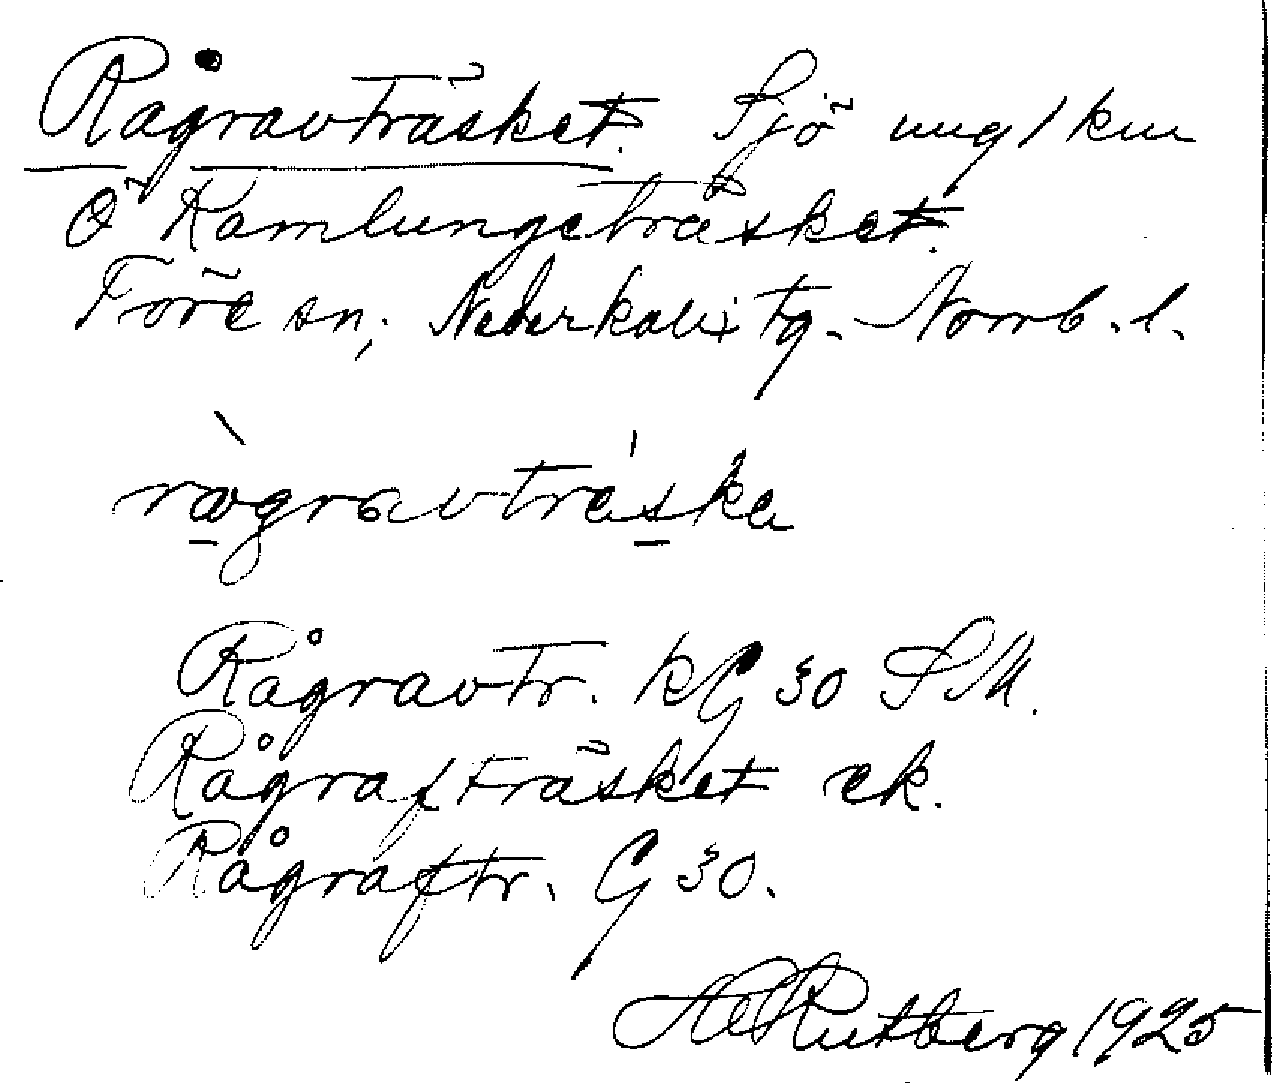 Rågravträsket. Sjö ung 1 km
Ö Kamlungeträsket.
Töre sn, Nederkalix tg. Norrb. l.
rågravträska
Rågravtr. kG 30 SM.
Rågrafträsket ek.
Rågraftr. G 30.
Rutberg 1925